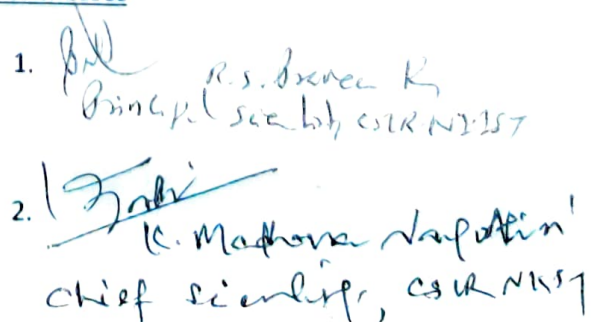 1.
R.S. Praveen K
Principal Scientist, CSIR-NIIST
2.
K. Madhava
Chief Scientist, CSIR NIIST